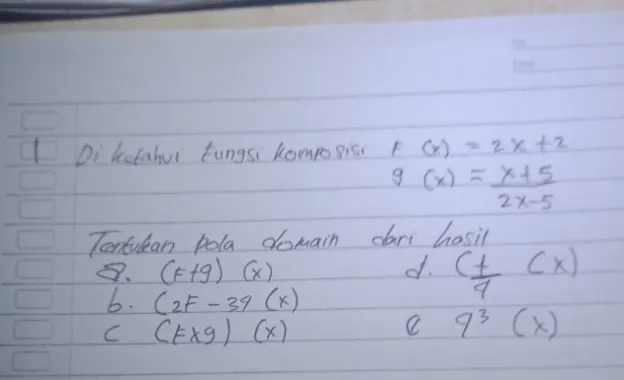 1 Di ketahui fungsi komposisi f (x) = 2x+2
g (x) = x+5
2x-5
Tentukan pola domain dari hasil
a. (f+g) (x) d. (f/g (x)
b. (2f-3g (x)
c (fxg) (x) e g³ (x)